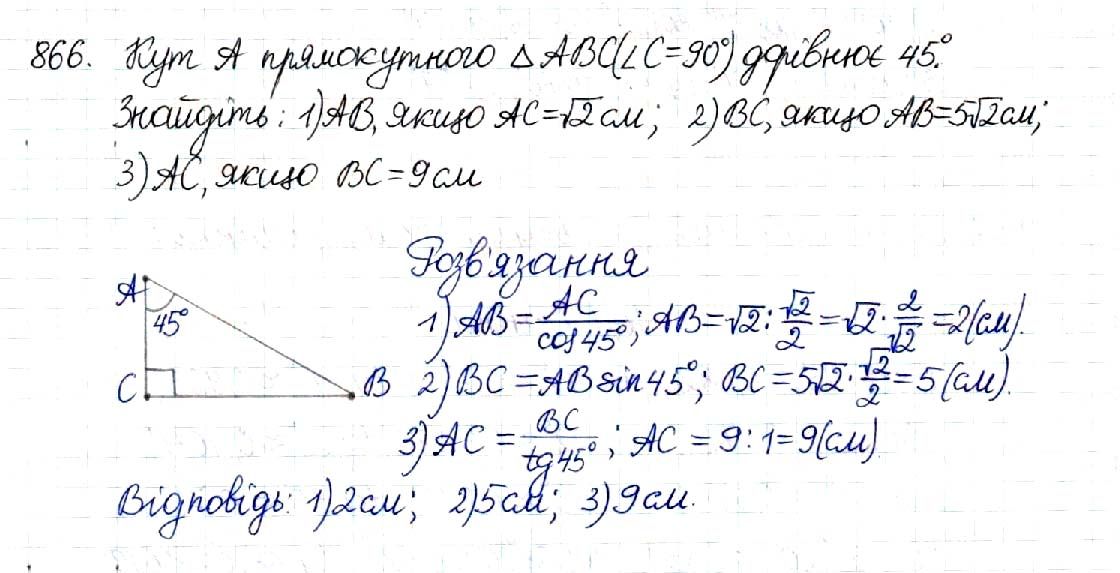 866. Кут A прямокутного △ABC(∠C=90°) дорівнює 45°.
Знайдіть: 1)AB, якщо AC=√2см; 2)BC, якщо AB=5√2см;
3)AC, якщо BC=9см
Розв'язання
A
45°
C
B
1)AB=AC/cos45°; AB=√2:√2/2=√2·2/√2=2(см).
2)BC=ABsin45°; BC=5√2·√2/2=5(см).
3)AC=BC/tg45°; AC=9:1=9(см)
Відповідь: 1)2см; 2)5см; 3)9см.